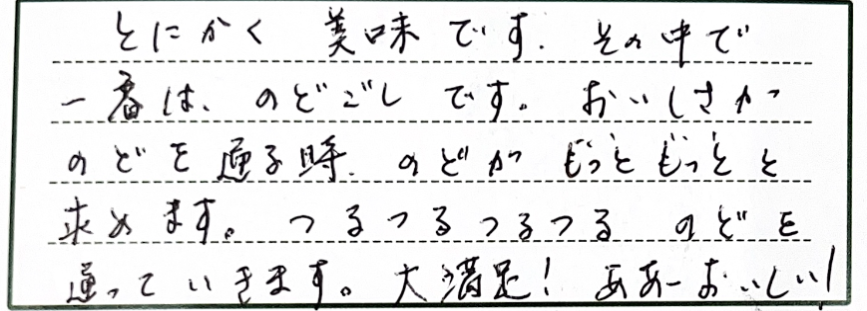 とにかく 美味です. その中で
一番は、のどごしです。おいしさが
のどを通る時、のどがもっともっとと
求めます。つるつるつるつる のどを
通っていきます。大満足! ああーおいしい!